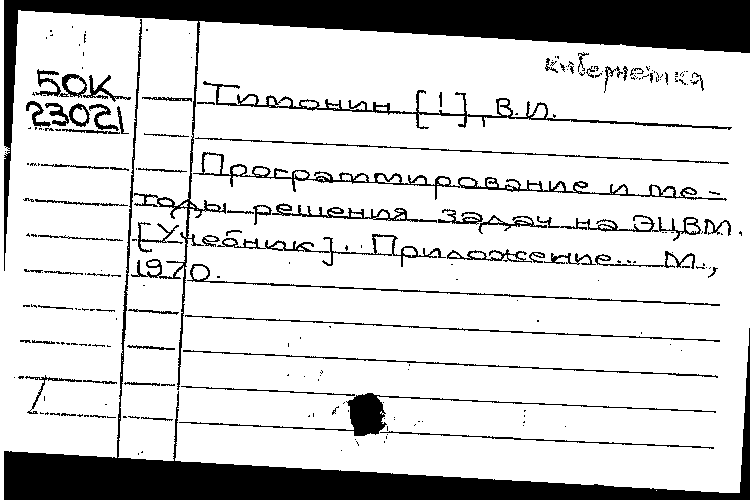 кибернетика
50К
23021
Тимонин [!], В.И.
Программирование и ме-
тоды решения задач на ЭЦВМ.
[Учебник]. Приложение... М.,
1970.